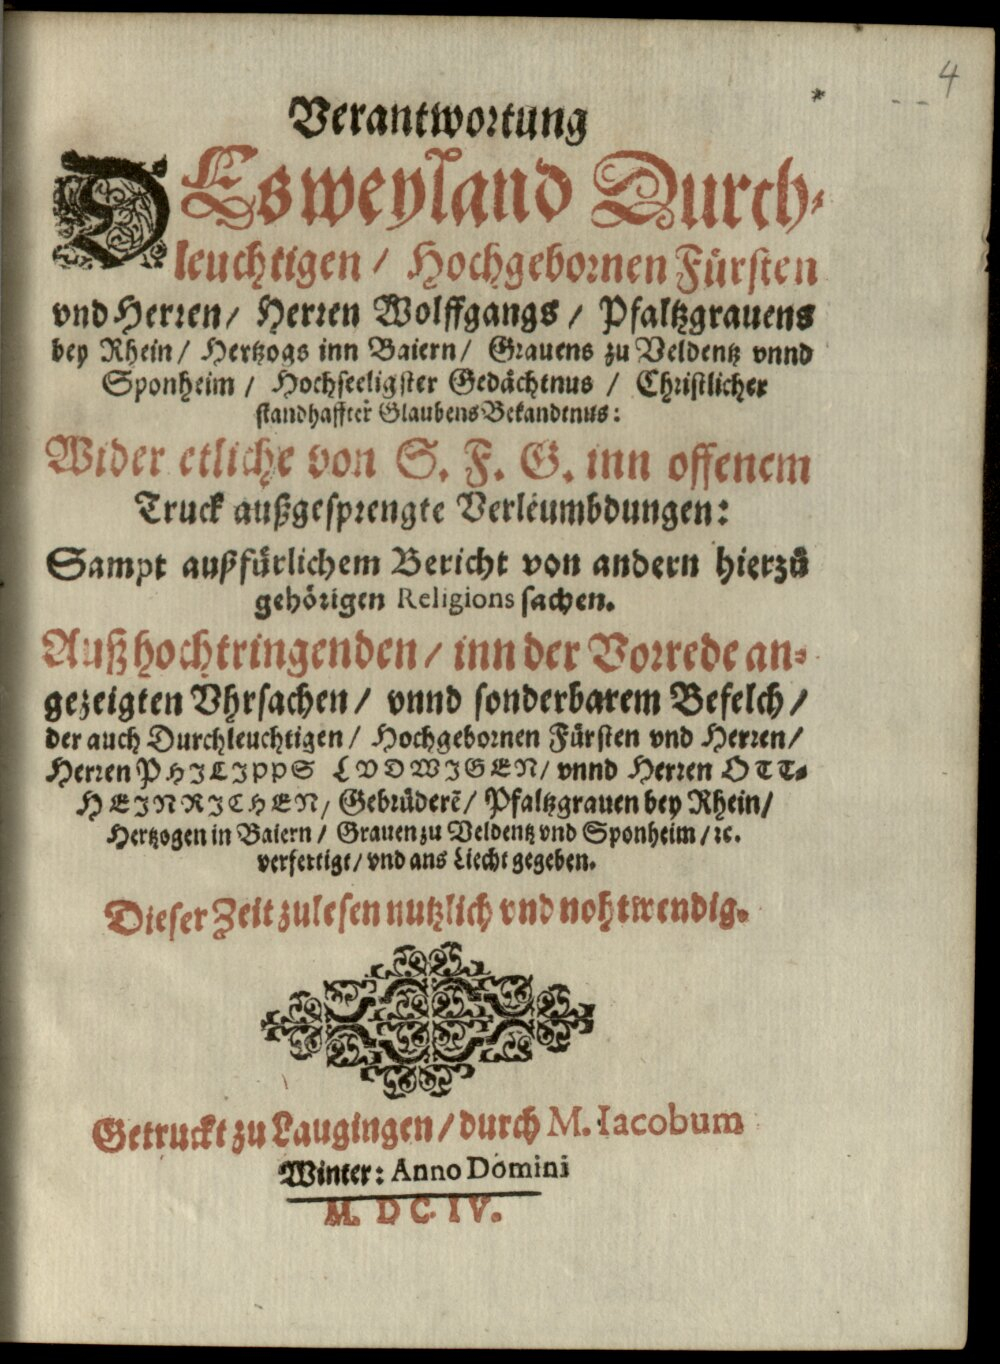 4
Verantwortung
DEs weyland Durch-
leuchtigen / Hochgebornen Fürsten
vnd Herren / Herren Wolffgangs / Pfaltzgrauens
bey Rhein / Hertzogs inn Baiern / Grauens zu Veldentz vnnd
Sponheim / Hochseeligster Gedächtnus / Christlicher
standhaffter Glaubens Bekandtnus:
Wider etliche von S. F. G. inn offenem
Truck außgesprengte Verleumbdungen:
Sampt außfürlichem Bericht von andern hierzů
gehörigen Religions sachen.
Auß hochtringenden / inn der Vorrede an-
gezeigten Vhrsachen / vnnd sonderbarem Befelch /
der auch Durchleuchtigen / Hochgebornen Fürsten vnd Herren /
Herren PHILIPPS LVDWIGEN / vnnd Herren OTT-
HEINRICHEN, Gebrůderẽ / Pfaltzgrauen bey Rhein /
Hertzogen in Baiern / Grauen zu Veldentz vnd Sponheim / ꝛc.
verfertigt / vnd ans Liecht gegeben.
Dieser Zeit zulesen nutzlich vnd nohtwendig.
Getruckt zu Laugingen / durch M. Iacobum
Winter: Anno Domini
M. DC. IV.